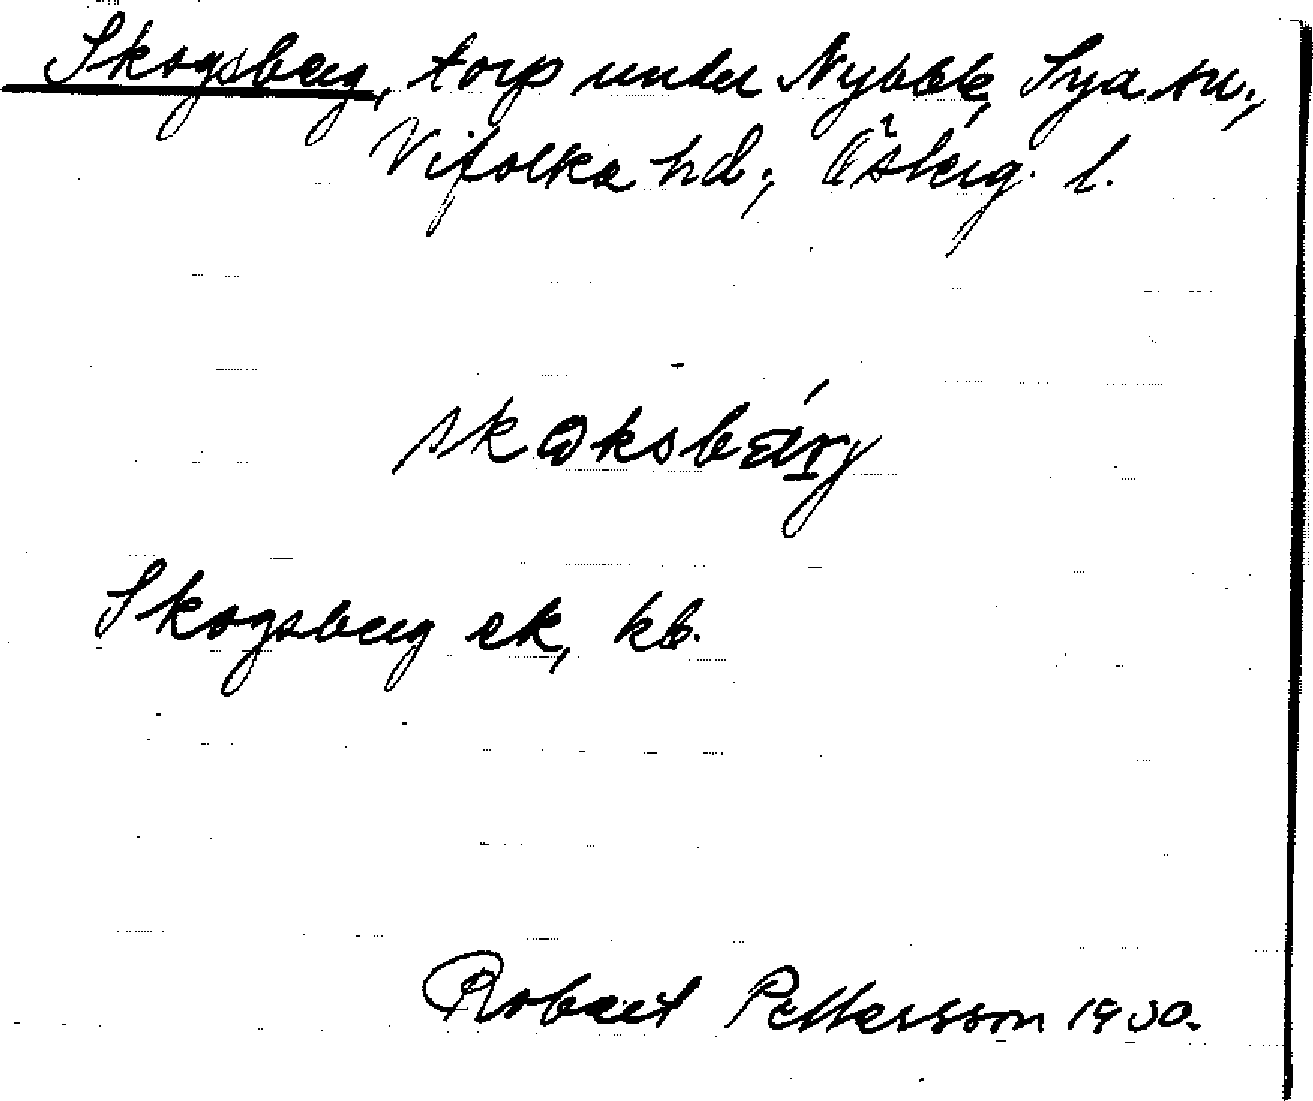 Skogsberg, torp under Nybble, Sya sn.,
Vifolka hd., Österg. l.
skɷksbärj
Skogsberg ek, kb.
Robert Pettersson 1930.